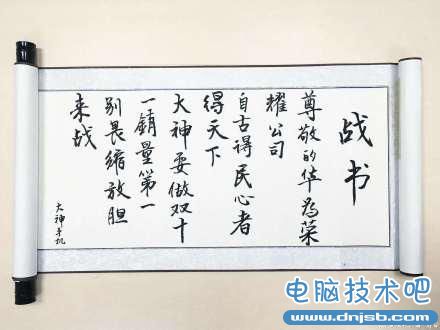 战书
尊敬的华为荣
耀公司
自古得民心者
得天下
大神要做双十
一销量第一
别畏缩放胆
来战
大神手机
电脑技术吧
www.dnjsb.com